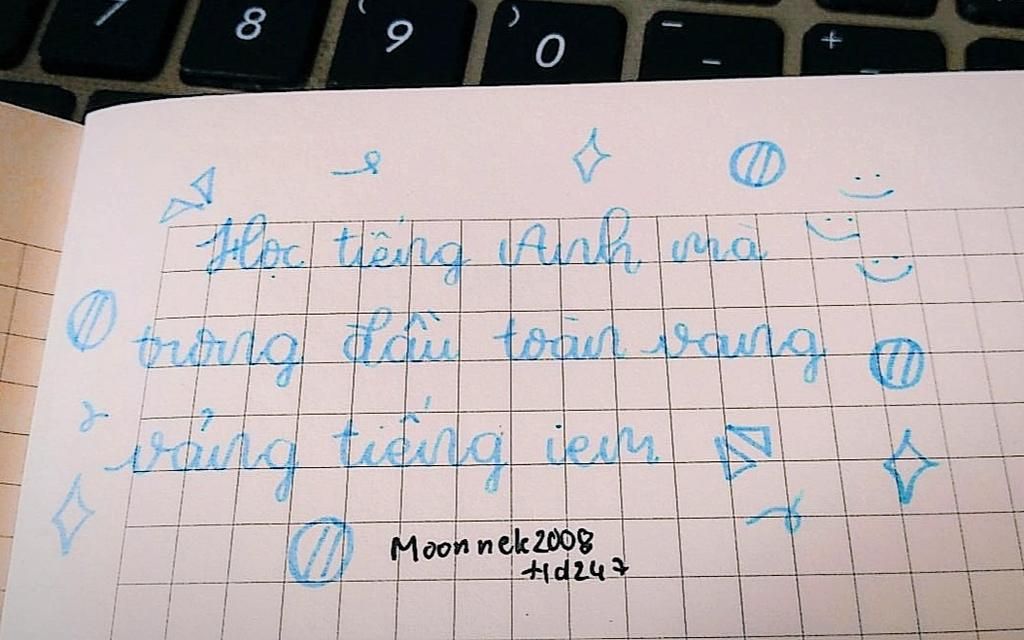 7 8 ( 9 ) 0 _ - + =
Học tiếng Anh mà
trong đầu toàn vang
vảng tiếng iem
Moonnek2008
+Hd247